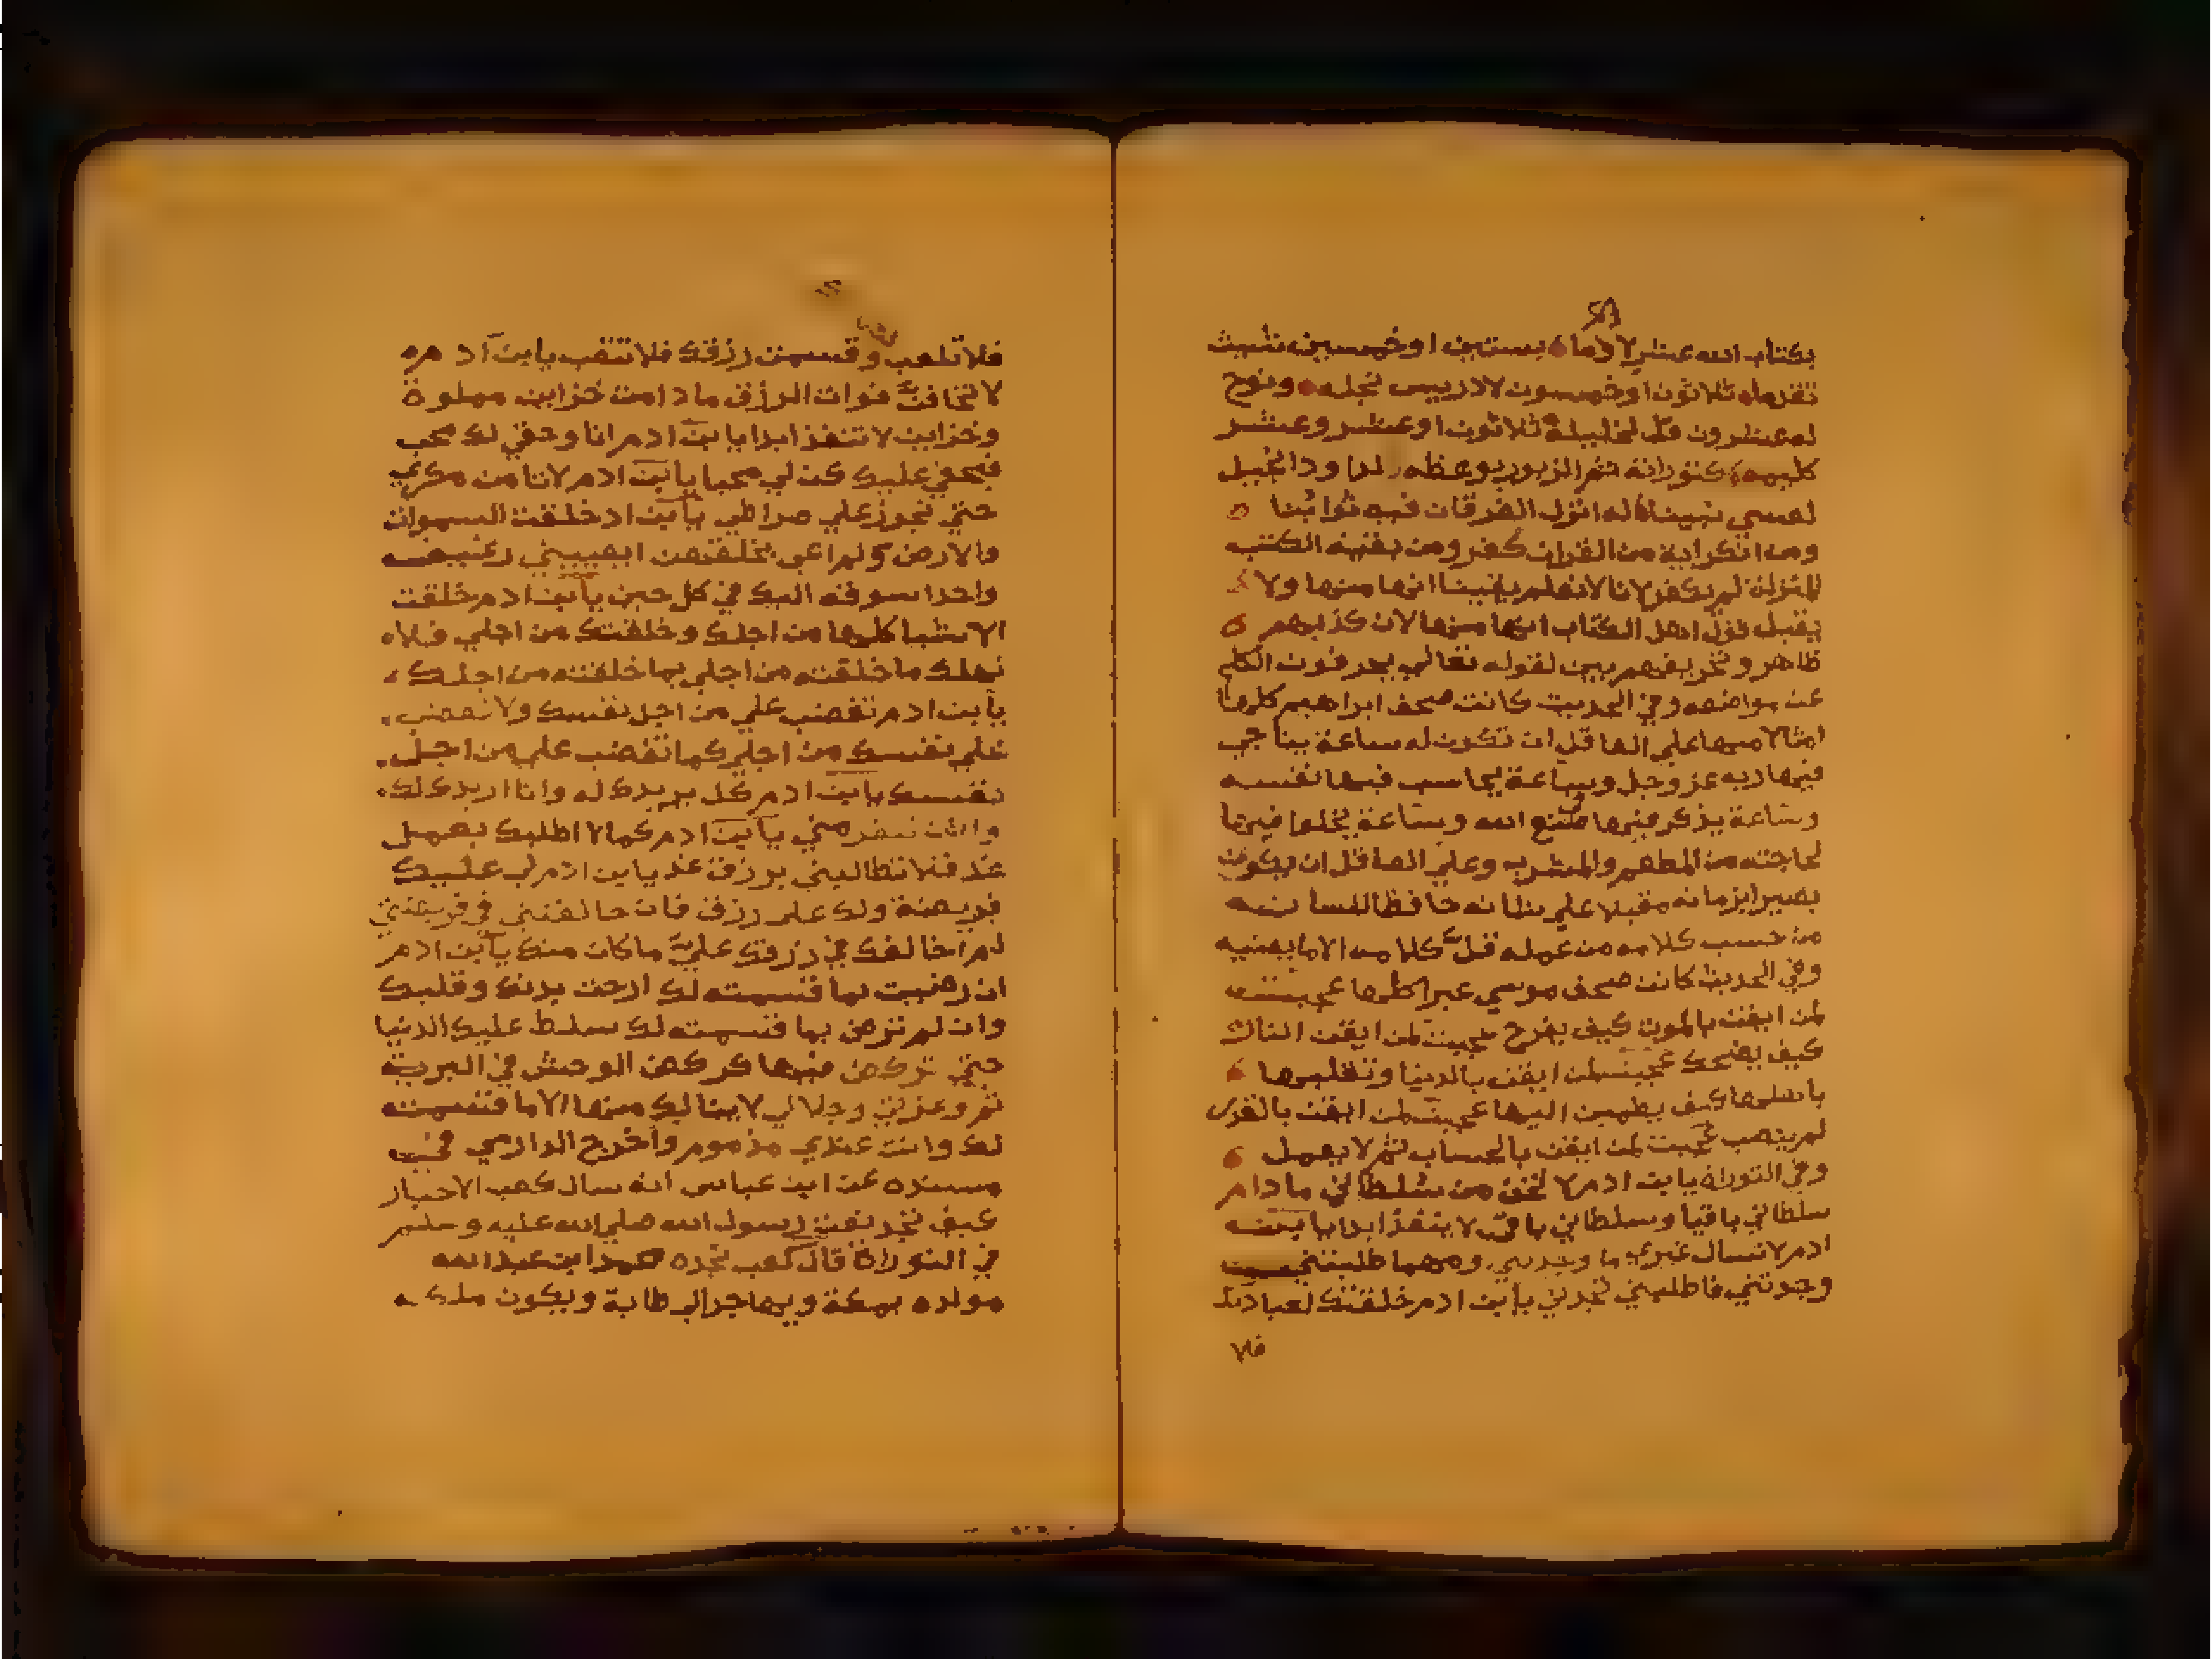 بكتاب الله عشر لادما بستين او خمسين لشيث
تقرماه ثلاثون او خمسون لادريس نجله ونوح
له عشرون قل لخليله ثلاثون او عشر وعشر
كليمه كتوراة ثم الزبور بوعظه لداود انجيل
لعيسي نبينا له انزل الفرقان فيه ثوابنا
ومن انكر اية من القران كفر ومن بقية الكتب
المنزلة لم يكفر لانا لانعلم يقينا انها منها ولا
يقبل قول اهل الكتاب انها منها لان كذبهم
ظاهر وتحريفهم بين لقوله تعالي يحرفون الكلم
عن مواضعه وفي الحديث كانت صحف ابراهيم كلها
امثالا منها علي العاقل ان تكون له ساعة يناجي
فيها ربه عز وجل وساعة يحاسب فيها نفسه
وساعة يذكر فيها صنع الله وساعة يخلوا فيها
لحاجته من المطعم والمشرب وعلي العاقل ان يكون
بصيرا بزمانه مقبلا علي شانه حافظا للسانه
من حسب كلامه من عمله قل كلامه الا ما يعنيه
وفي الحديث كانت صحف موسي عبرا كلها عجبت
لمن ايقن بالموت كيف يفرح عجبت لمن ايقن النار
كيف يضحك عجبت لمن ايقن بالدنيا وتقلبها
باهلها كيف يطمين اليها عجبت لمن ايقن بالقدر
لم ينصب عجبت لمن ايقن بالحساب ثم لا يعمل
وفي التوراة يابن ادم لا تخف من سلطاني مادام
سلطاني باقيا وسلطاني باق لا ينفذ ابدا يابن
ادم لا تسال غيري ما وجدتني ومهما طلبتني
وجدتني فاطلبني تجدني يابن ادم خلقتك لعبادتي
فلا
فلا تلعب وقسمت رزقك فلا تتعب يابن ادم
لا تخافن فوات الرزق مادامت خزاين مملوة
وخزاين لا تنفذ ابدا يابن ادم انا وحقي لك محب
فبحقي عليك كن لي محبا يابن ادم لا تامن مكري
حتي تجوز علي صراطي يابن ادم خلقت السموات
والارض ولم اعي بخلقهن ايعييني رغيف
واحد اسوقه اليك في كل حين يابن ادم خلقت
الاشيا كلها من اجلك وخلقتك من اجلي فلا
تهلك ما خلقته من اجلي بما خلقته من اجلك
يابن ادم تغضب علي من اجل نفسك ولا تغضب
علي نفسك من اجلي كما تغضب علي من اجل
نفسك يابن ادم كل يريدك له وانا اريدك لك
وانت تفر مني يابن ادم كما لا اطلبك بعمل
غد فلا تطالبني برزق غد يابن ادم لي عليك
فريضة ولك علي رزق فان خالفتني في فريضتي
لم اخالفك في رزقك علي ما كان منك يابن ادم
ان رضيت بما قسمته لك ارحت بدنك وقلبك
وان لم ترض بما قسمته لك سلط عليك الدنيا
حتي تركض فيها كركض الوحش في البرية
ثم وعزتي وجلالي لا ينالك منها الا ما قسمته
لك وانت عندي مذموم واخرج الدارمي في
مسنده عن ابن عباس انه سال كعب الاحبار
كيف تجد نعت رسول الله صلي الله عليه وسلم
في التوراة قال كعب نجده محمد ابن عبد الله
مولده بمكة ويهاجر الي طابة ويكون ملكه